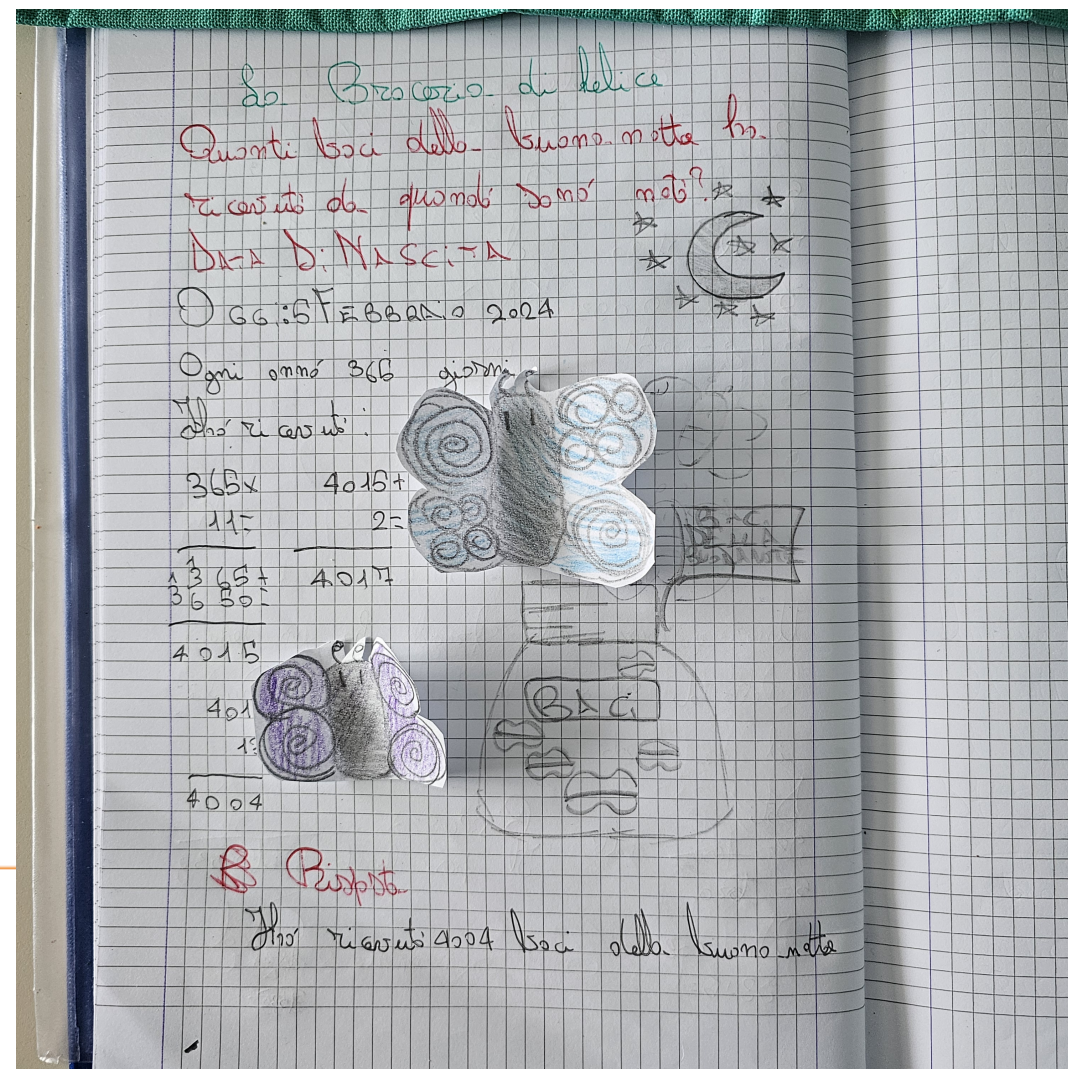 La Braceria di Felice
Quanti baci della buona notte ho
ricevuto da quando sono nato?
DATA Di NASCiTA
OGGi:5 FEBBRAiO 2024
Ogni anno 365 giorni
Ho ricevuto:
365x 4015+
11= 2=
365+ 4017
3650=
4015
401
1=
4004
BACi
R Risposta
Ho ricevuto 4004 baci della buona notte